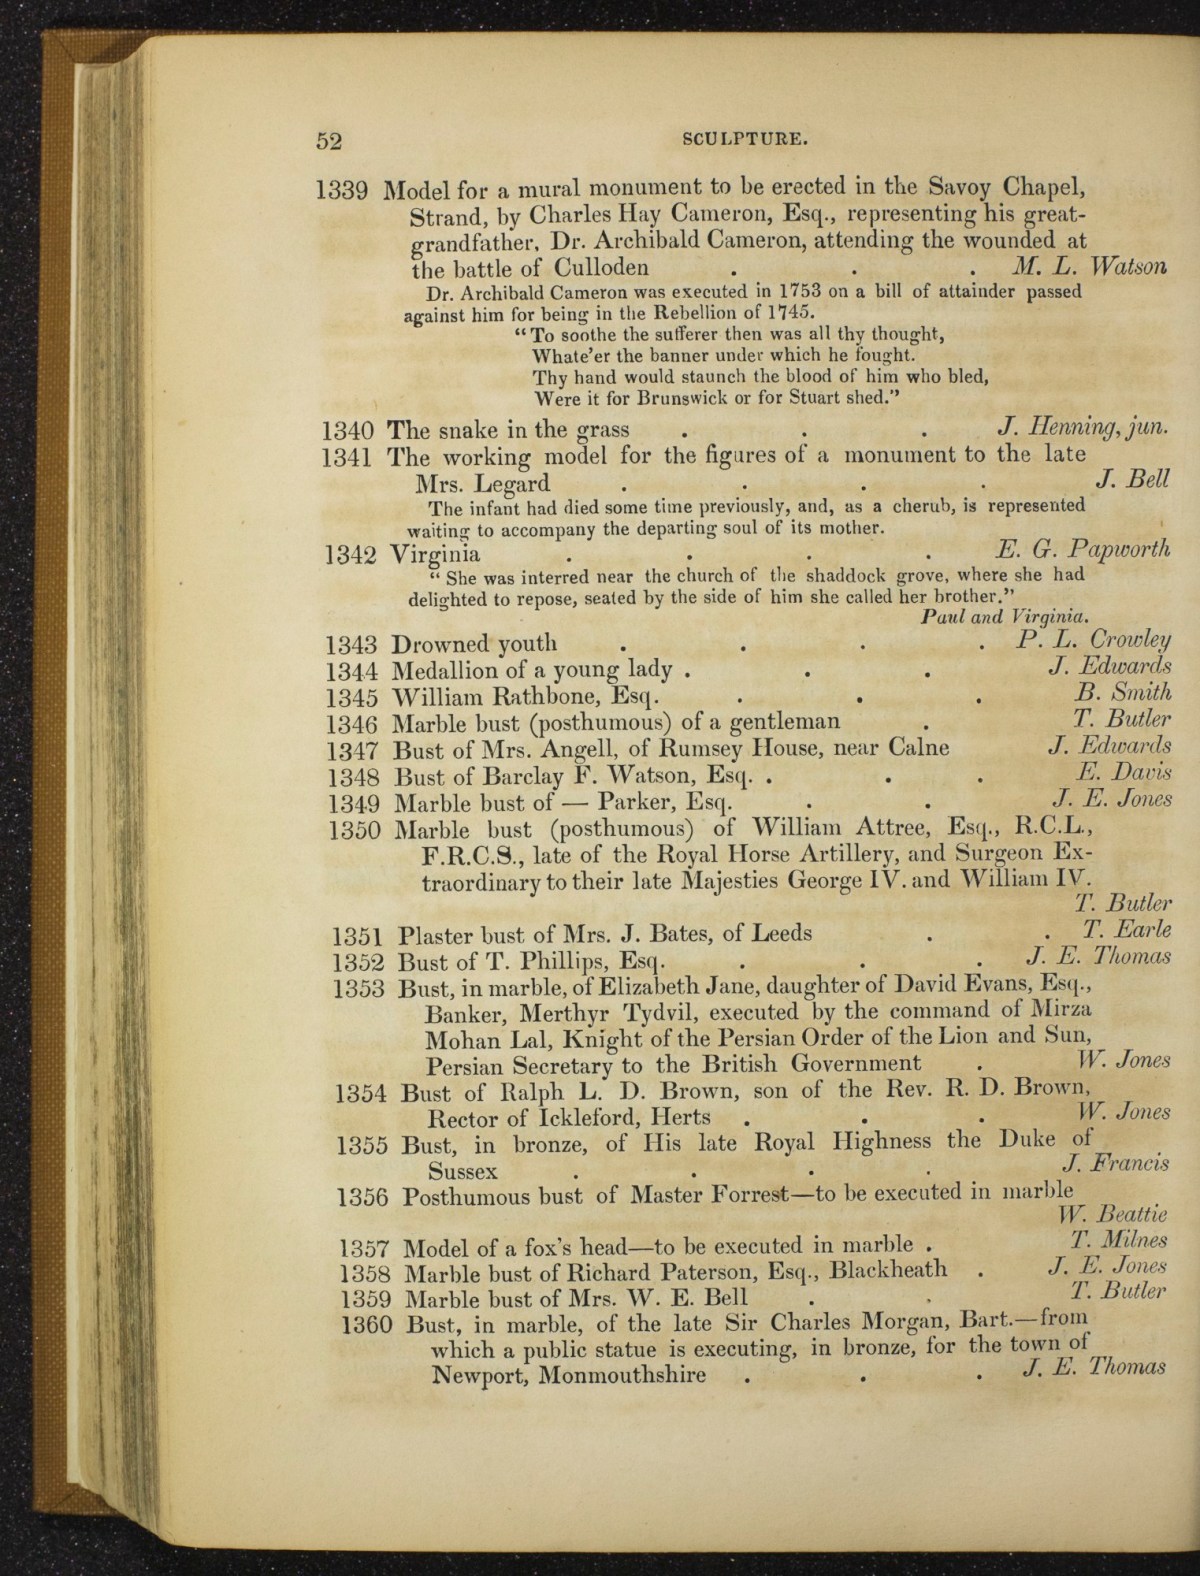 52 SCULPTURE.
1339 Model for a mural monument to be erected in the Savoy Chapel,
Strand, by Charles Hay Cameron, Esq., representing his great-
grandfather, Dr. Archibald Cameron, attending the wounded at
the battle of Culloden . . . M. L. Watson
Dr. Archibald Cameron was executed in 1753 on a bill of attainder passed
against him for being in the Rebellion of 1745.
“To soothe the sufferer then was all thy thought,
Whate’er the banner under which he fought.
Thy hand would staunch the blood of him who bled,
Were it for Brunswick or for Stuart shed.”
1340 The snake in the grass . . . J. Henning, jun.
1341 The working model for the figures of a monument to the late
Mrs. Legard . . . . J. Bell
The infant had died some time previously, and, as a cherub, is represented
waiting to accompany the departing soul of its mother.
1342 Virginia . . . . E. G. Papworth
“She was interred near the church of the shaddock grove, where she had
delighted to repose, seated by the side of him she called her brother.”
Paul and Virginia.
1343 Drowned youth . . . . P. L. Crowley
1344 Medallion of a young lady . . . J. Edwards
1345 William Rathbone, Esq. . . . B. Smith
1346 Marble bust (posthumous) of a gentleman . T. Butler
1347 Bust of Mrs. Angell, of Rumsey House, near Calne J. Edwards
1348 Bust of Barclay F. Watson, Esq. . . . E. Davis
1349 Marble bust of — Parker, Esq. . . J. E. Jones
1350 Marble bust (posthumous) of William Attree, Esq., R.C.L.,
F.R.C.S., late of the Royal Horse Artillery, and Surgeon Ex-
traordinary to their late Majesties George IV. and William IV.
T. Butler
1351 Plaster bust of Mrs. J. Bates, of Leeds . . T. Earle
1352 Bust of T. Phillips, Esq. . . . J. E. Thomas
1353 Bust, in marble, of Elizabeth Jane, daughter of David Evans, Esq.,
Banker, Merthyr Tydvil, executed by the command of Mirza
Mohan Lal, Knight of the Persian Order of the Lion and Sun,
Persian Secretary to the British Government . W. Jones
1354 Bust of Ralph L. D. Brown, son of the Rev. R. D. Brown,
Rector of Ickleford, Herts . . . W. Jones
1355 Bust, in bronze, of His late Royal Highness the Duke of
Sussex . . . . J. Francis
1356 Posthumous bust of Master Forrest—to be executed in marble
W. Beattie
1357 Model of a fox’s head—to be executed in marble . T. Milnes
1358 Marble bust of Richard Paterson, Esq., Blackheath . J. E. Jones
1359 Marble bust of Mrs. W. E. Bell . . T. Butler
1360 Bust, in marble, of the late Sir Charles Morgan, Bart.—from
which a public statue is executing, in bronze, for the town of
Newport, Monmouthshire . . . J. E. Thomas